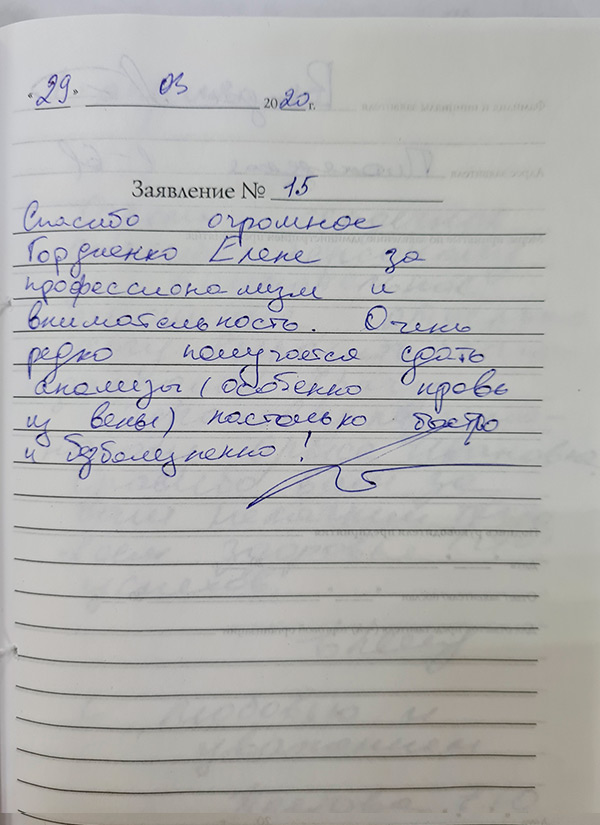 «29» 03 2020 г.
Заявление № 15
Спасибо огромное
Гордиенко Елене за
профессионализм и
внимательность. Очень
редко получается сдать
анализы (особенно кровь
из вены) настолько быстро
и безболезненно!